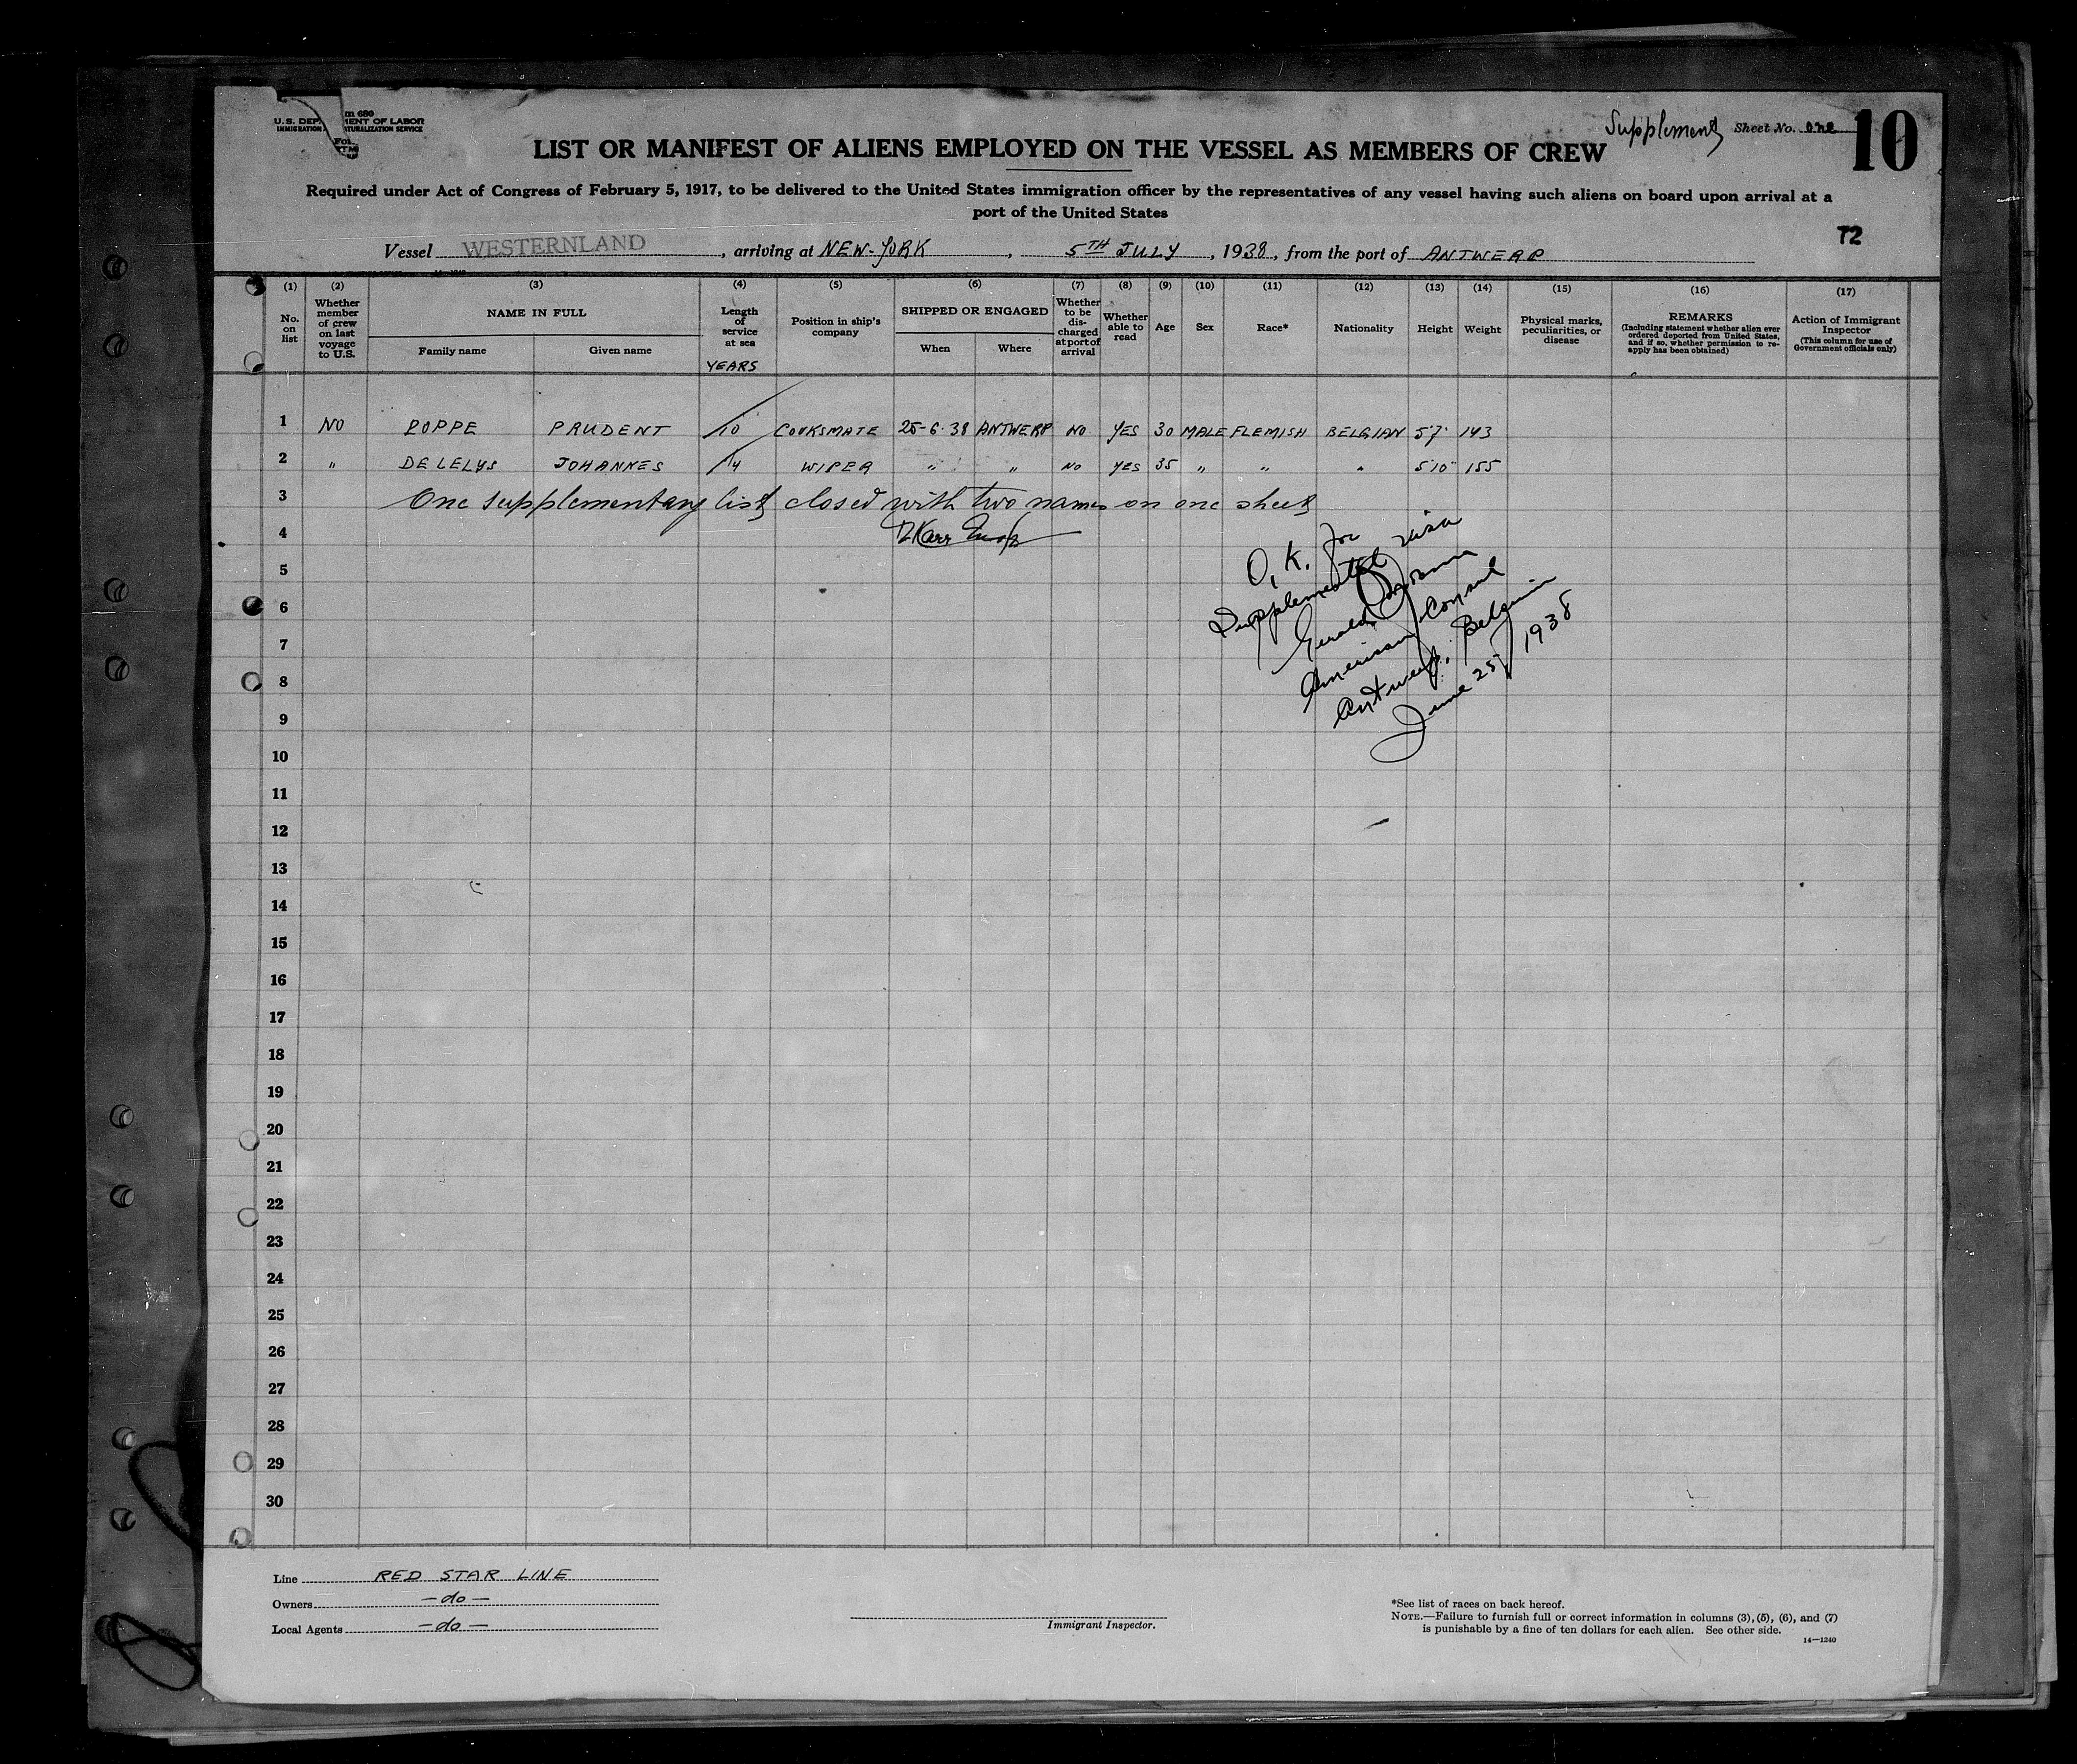 m 680
U. S. DEP MENT OF LABOR
IMMIGRATION TURALIZATION SERVICE
Supplement Sheet No. one 10
LIST OR MANIFEST OF ALIENS EMPLOYED ON THE VESSEL AS MEMBERS OF CREW
Required under Act of Congress of February 5, 1917, to be delivered to the United States immigration officer by the representatives of any vessel having such aliens on board upon arrival at a
port of the United States
T2
Vessel WESTERNLAND, arriving at NEW-YORK, 5TH JULY, 1938, from the port of ANTWERP
(1) (2) (3) (4) (5) (6) (7) (8) (9) (10) (11) (12) (13) (14) (15) (16) (17)
No. on list
Whether member of crew on last voyage to U.S.
NAME IN FULL
Family name
Given name
Length of service at sea
YEARS
Position in ship's company
SHIPPED OR ENGAGED
When
Where
Whether to be discharged at port of arrival
Whether able to read
Age
Sex
Race*
Nationality
Height
Weight
Physical marks, peculiarities, or disease
REMARKS
(Including statement whether alien ever ordered deported from United States, and if so, whether permission to reapply has been obtained)
Action of Immigrant Inspector
(This column for use of Government officials only)
1 NO POPPE PRUDENT 10 COOKSMATE 25-6-38 ANTWERP NO YES 30 MALE FLEMISH BELGIAN 5'7" 143
2 " DE LELYS JOHANNES 14 WIPER " " NO YES 35 " " " 5'10" 155
3 One supplementary list closed with two names on one sheet
4
O.K. for
supplemental visa
Gerald
American Consul
Antwerp, Belgium
June 25, 1938
5
6
7
8
9
10
11
12
13
14
15
16
17
18
19
20
21
22
23
24
25
26
27
28
29
30
Line RED STAR LINE
Owners -do-
Local Agents -do-
Immigrant Inspector.
*See list of races on back hereof.
NOTE.—Failure to furnish full or correct information in columns (3), (5), (6), and (7)
is punishable by a fine of ten dollars for each alien. See other side.
14—1240